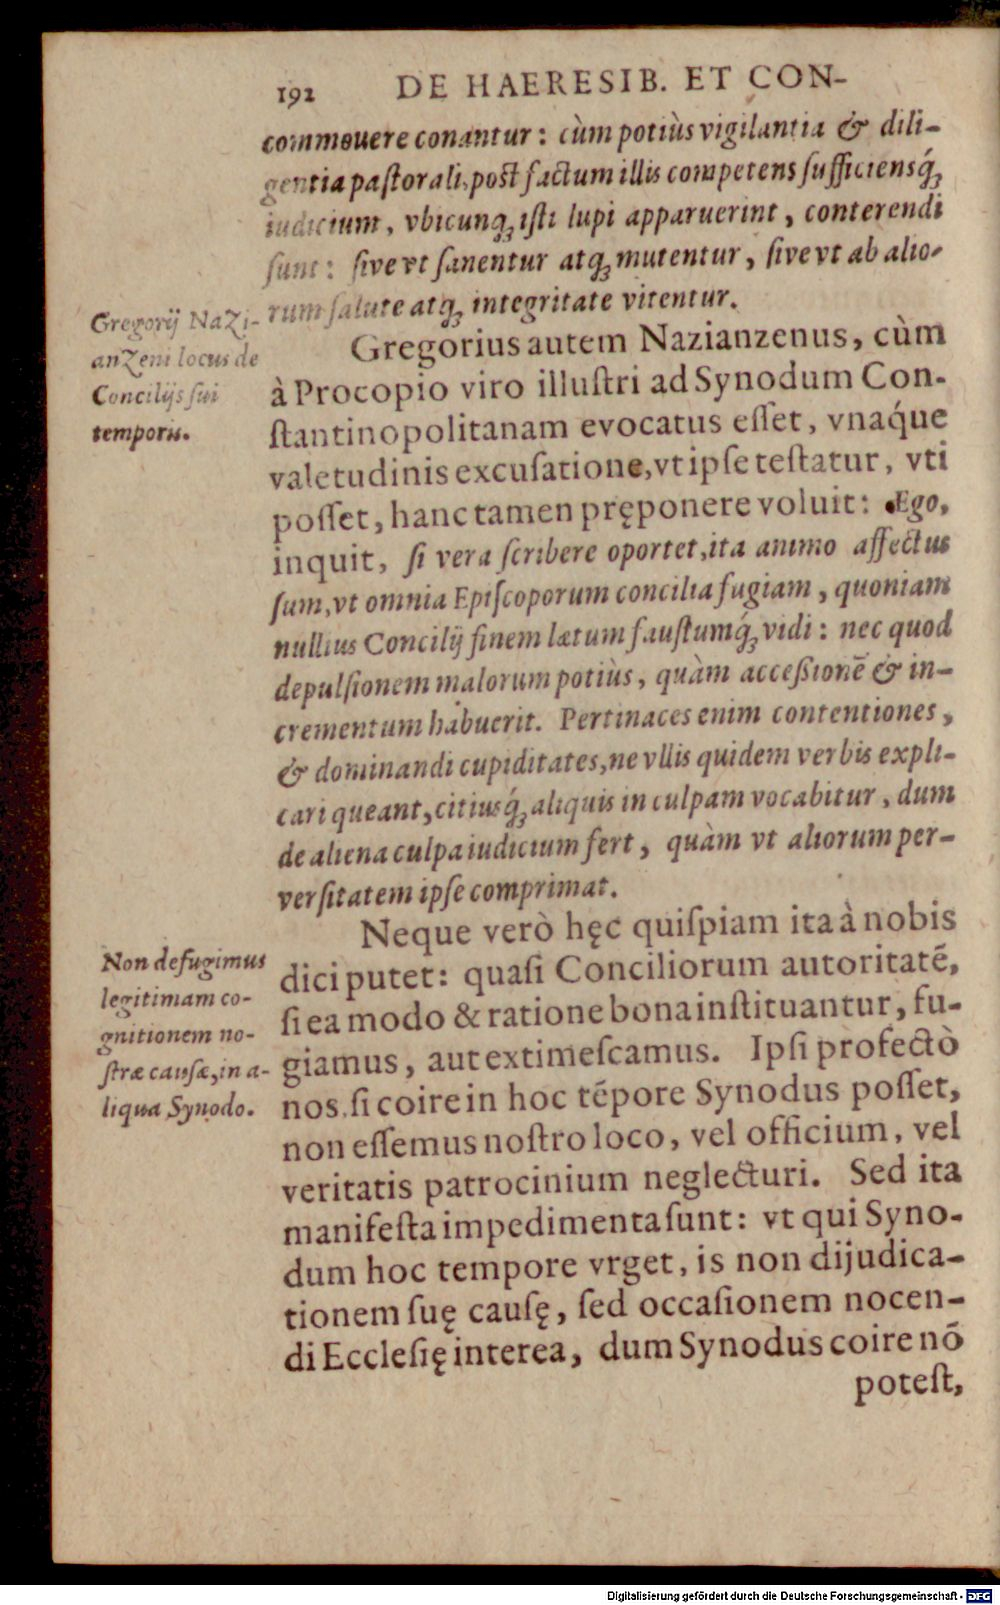 192 DE HAERESIB. ET CON-
commouere conantur: cùm potiùs vigilantia & dili-
gentia paſtorali, poſt factum illis competens ſufficiensq́ꝫ
iudicium, vbicunqꝫ iſti lupi apparuerint, conterendi
ſunt: ſive vt ſanentur atqꝫ mutentur, ſive vt ab alio-
rum ſalute atqꝫ integritate vitentur.
Gregorij Nazi-
anzeni locus de
Concilijs ſui
temporis.
Gregorius autem Nazianzenus, cùm
à Procopio viro illuſtri ad Synodum Con-
ſtantinopolitanam evocatus eſſet, vnaq́ue
valetudinis excuſatione, vt ipſe teſtatur, vti
poſſet, hanc tamen pręponere voluit: Ego,
inquit, ſi vera ſcribere oportet, ita animo affectus
ſum, vt omnia Epiſcoporum concilia fugiam, quoniam
nullius Concilij finem lætum fauſtumq́ꝫ vidi: nec quod
depulſionem malorum potiùs, quàm acceßionē & in-
crementum habuerit. Pertinaces enim contentiones,
& dominandi cupiditates, ne vllis quidem verbis expli-
cari queant, citiusq́ꝫ aliquis in culpam vocabitur, dum
de aliena culpa iudicium fert, quàm vt aliorum per-
verſitatem ipſe comprimat.
Non defugimus
legitimam co-
gnitionem no-
ſtræ cauſæ, in a-
liqua Synodo.
Neque verò hęc quiſpiam ita à nobis
dici putet: quaſi Conciliorum autoritatē,
ſi ea modo & ratione bona inſtituantur, fu-
giamus, aut extimeſcamus. Ipſi profectò
nos, ſi coire in hoc tēpore Synodus poſſet,
non eſſemus noſtro loco, vel officium, vel
veritatis patrocinium neglecturi. Sed ita
manifeſta impedimenta ſunt: vt qui Syno-
dum hoc tempore vrget, is non dijudica-
tionem ſuę cauſę, ſed occaſionem nocen-
di Eccleſię interea, dum Synodus coire nō
poteſt,
Digitalisierung gefördert durch die Deutsche Forschungsgemeinschaft - DFG